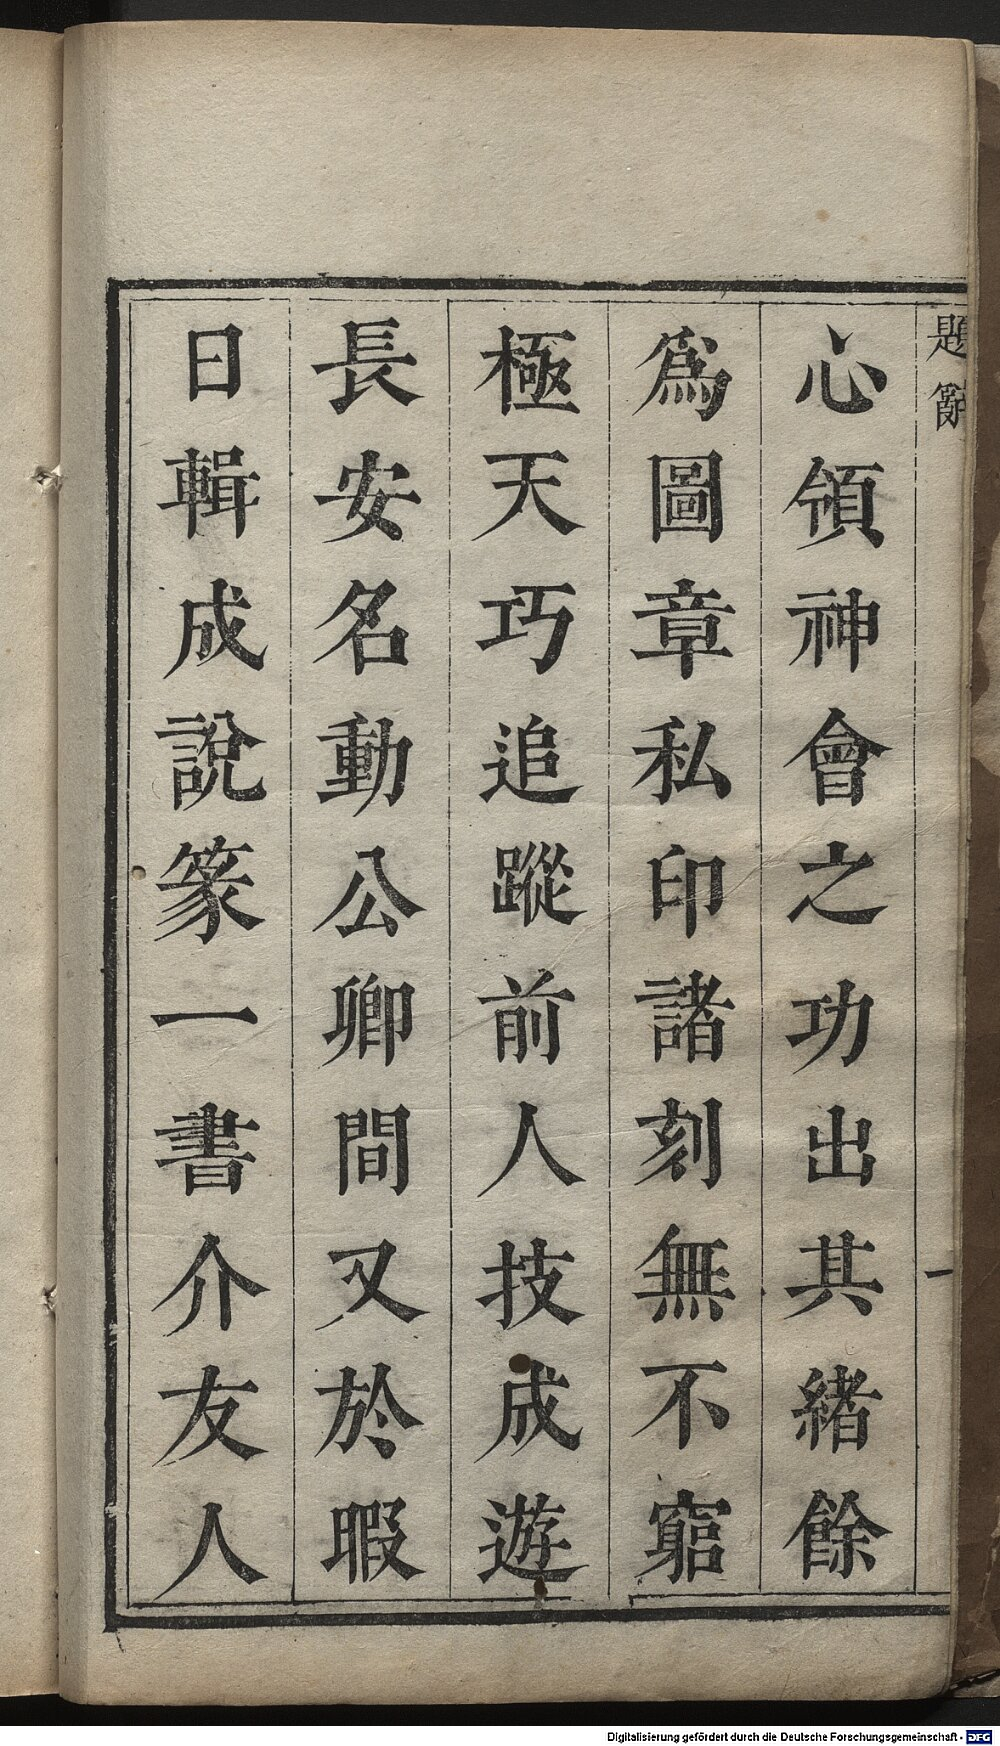 題辭
一
心領神會之功出其緒餘
爲圖章私印諸刻無不窮
極天巧追蹤前人技成遊
長安名動公卿間又於暇
日輯成說篆一書介友人
Digitalisierung gefördert durch die Deutsche Forschungsgemeinschaft - DFG